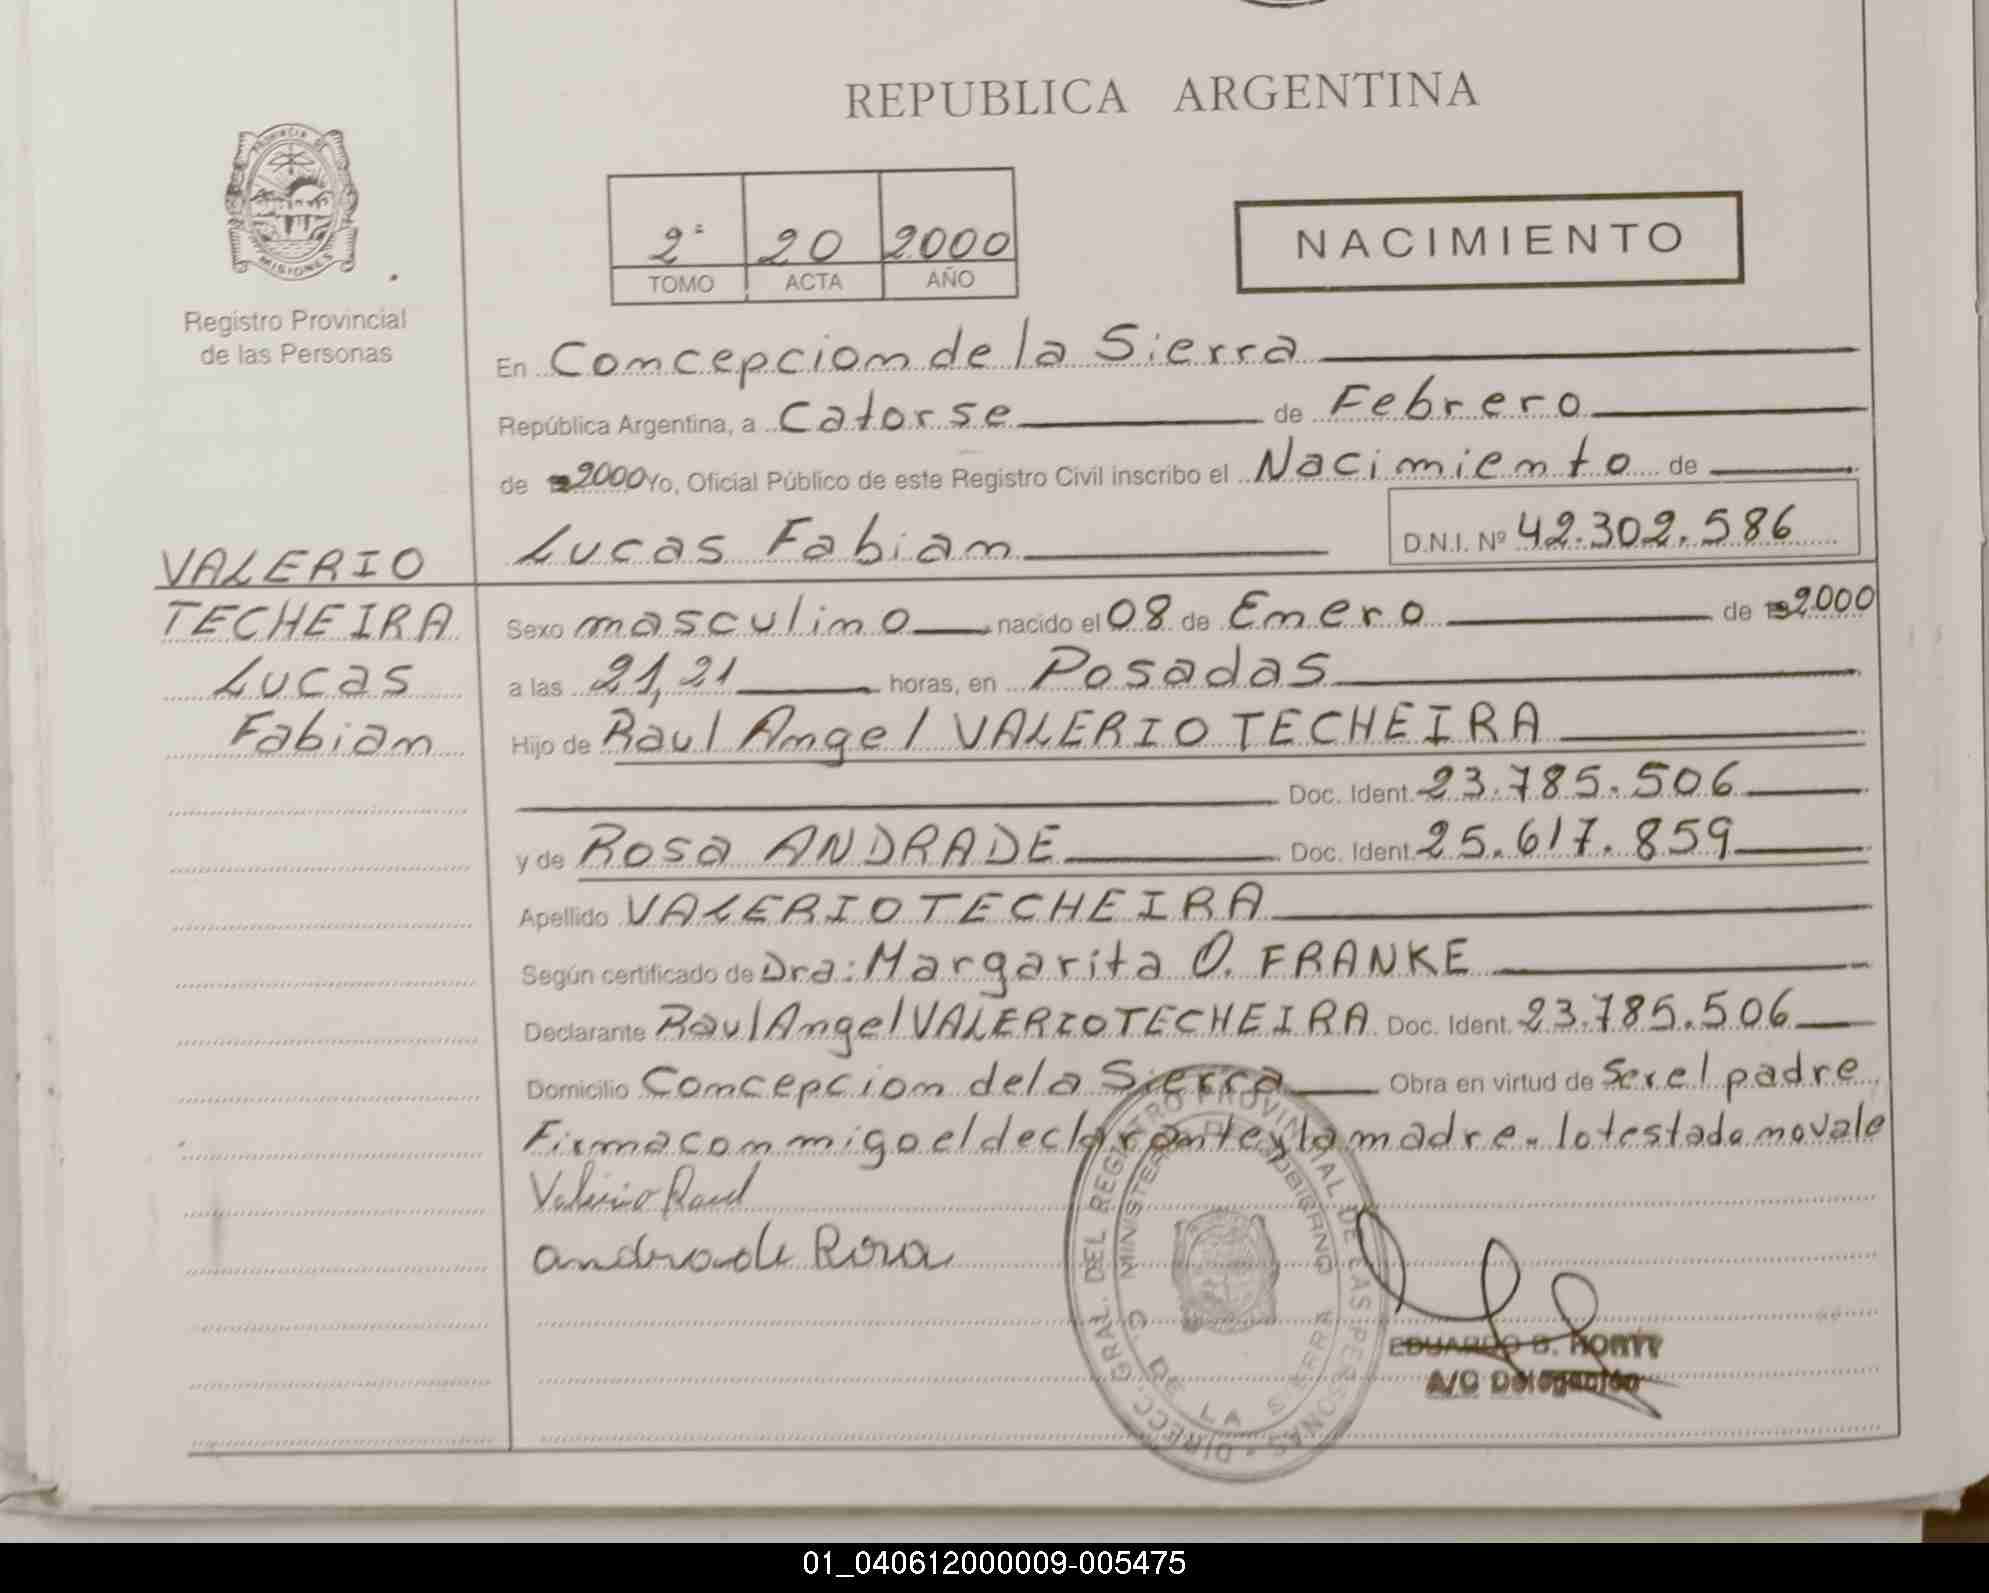 REPUBLICA ARGENTINA
PROVINCIA DE
MISIONES
Registro Provincial
de las Personas
2º 20 2000
TOMO ACTA AÑO
NACIMIENTO
En Concepcion de la Sierra
República Argentina, a Catorse de Febrero
de 2000 Yo, Oficial Público de este Registro Civil inscribo el Nacimiento de
Lucas Fabian D.N.I. Nº 42.302.586
VALERIO
TECHEIRA
Lucas
Fabian
Sexo masculino nacido el 08 de Enero de 19 2000
a las 21,21 horas, en Posadas
Hijo de Raul Angel VALERIO TECHEIRA
Doc. Ident. 23.785.506
y de Rosa ANDRADE Doc. Ident. 25.617.859
Apellido VALERIO TECHEIRA
Según certificado de Dra: Margarita O. FRANKE
Declarante Raul Angel VALERIO TECHEIRA Doc. Ident. 23.785.506
Domicilio Concepcion de la Sierra Obra en virtud de Ser el padre
Firma conmigo el declarante y la madre. lo testado no vale
Valerio Raul
andrade Rosa
DIRECC. GRAL. DEL REGISTRO PROVINCIAL DE LAS PERSONAS
MINISTERIO DE GOBIERNO
C. DE LA SIERRA
EDUARDO B.
A/C Delegación
01_040612000009-005475